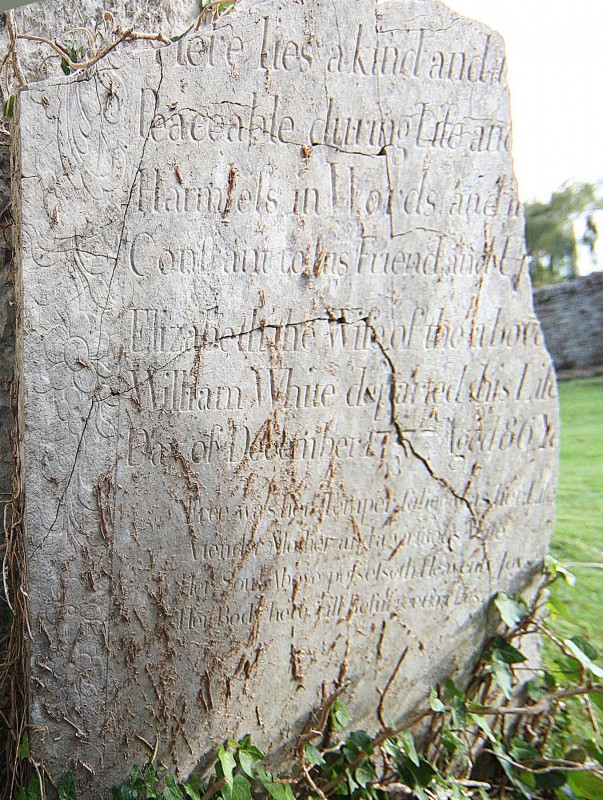 Here lies a kind and
Peaceable during Life and
Harmless in Words and
Constant to his Friend and
Elizabeth the Wife of the above
William White departed this Life
Day of December 175 Aged 86
Free was her Temper, Sober was her Life
A tender Mother and a virtuous Wife
Her Soul Above possesseth Heavens Joys
Her body here, till